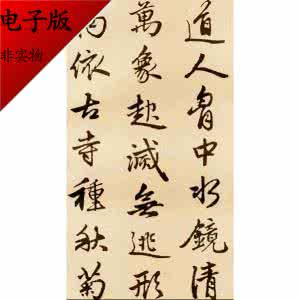 电子版
非实物
道人胷中水鏡清
萬象起滅無逃形
依古寺種秋菊